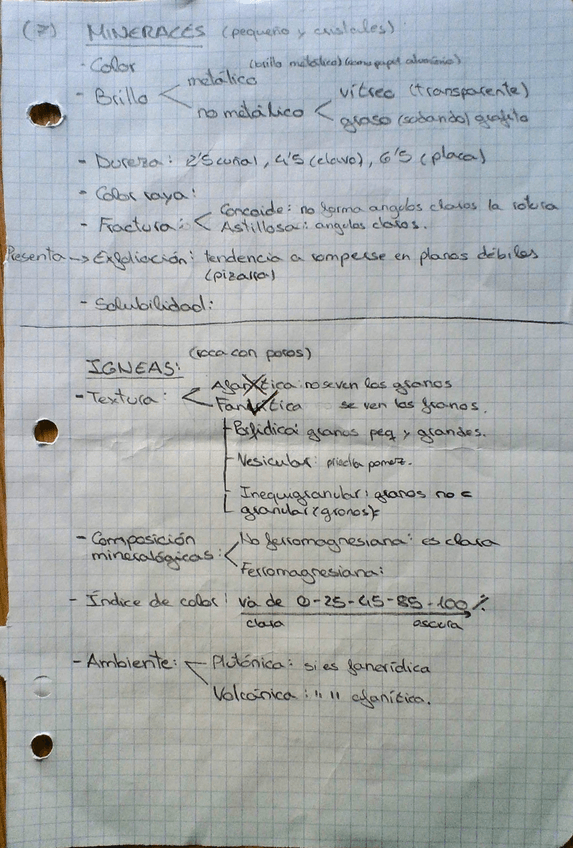 (7) MINERALES (pequeño y cristales)
- Color
(brillo metálico) (como papel aluminio)
- Brillo metálico
no metálico vítreo (transparente)
graso (sobando) grafito
- Dureza: 2'5 (uña), 4'5 (clavo), 6'5 (placa)
- Color raya:
- Fractura: Concoide: no forma angulos claros la rotura
Astillosa: angulos claros.
Presenta → Exfoliación: tendencia a romperse en planos débiles
(pizarra)
- Solubilidad:
IGNEAS: (roca con poros)
- Textura: Afanítica: no se ven los granos
se ven los granos.
granos peq y grandes.
- Vesicular: piedra pomez.
- Inequigranular: granos no =
granular (granos) =
- Composición No ferromagnesiana: es clara
mineralógicas: Ferromagnesiana:
- Índice de color: va de 0-25-45-85-100%
clara oscura
- Ambiente: Plutónica: si es fanerídica
Volcánica: " " afanítica.